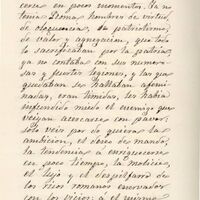 cerse en pocos momentos. Ya no
tenia Roma hombres de virtud,
de elocuencia, de patriotismo,
de valor y abnegacion, que todo
lo sacrificaban por la patria;
ya no contaba con sus numero-
sas y fuertes legiones, y las que
quedaban se hallaban afemi-
nadas, eran timidas, les habia
infundido miedo el enemigo que
veían acercarse con pavor:
solo veis por do quiera la am-
bicion, el deseo de mando,
la tendencia á enriquecerse
en poco tiempo, la molicie,
el lujo y el despilfarro de
los ricos romanos enervados
con los vicios: el mismo